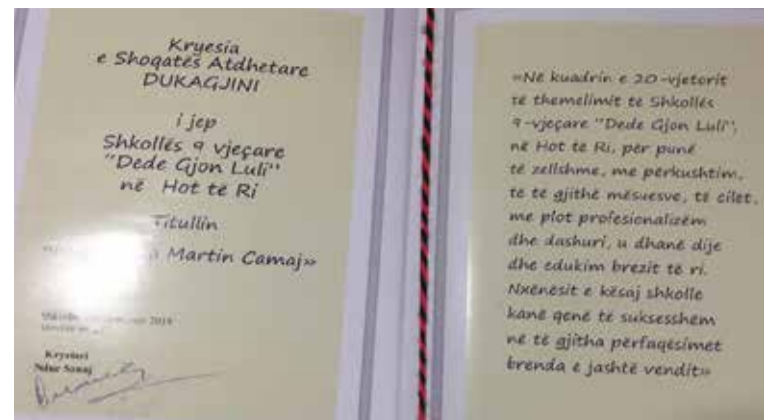 Kryesia
e Shoqatës Atdhetare
DUKAGJINI
i jep
Shkollës 9 vjeçare
"Dede Gjon Luli"
në Hot të Ri
Titullin
Martin Camaj»
2019
Kryetari
Ndue Sanaj
«Në kuadrin e 20-vjetorit
të themelimit të Shkollës
9-vjeçare "Dede Gjon Luli",
në Hot të Ri, për punë
të zellshme, me përkushtim,
të të gjithë mësuesve, të cilët,
me plot profesionalizëm
dhe dashuri, u dhanë dije
dhe edukim brezit të ri.
Nxënësit e kësaj shkolle
kanë qenë të suksesshëm
në të gjitha përfaqësimet
brenda e jashtë vendit»